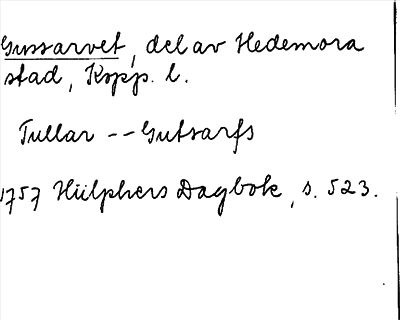 Gussarvet, del av Hedemora
stad, Kopp. l.
Tullar -- Gutsarfs
1757 Hülphers Dagbok, s. 523.